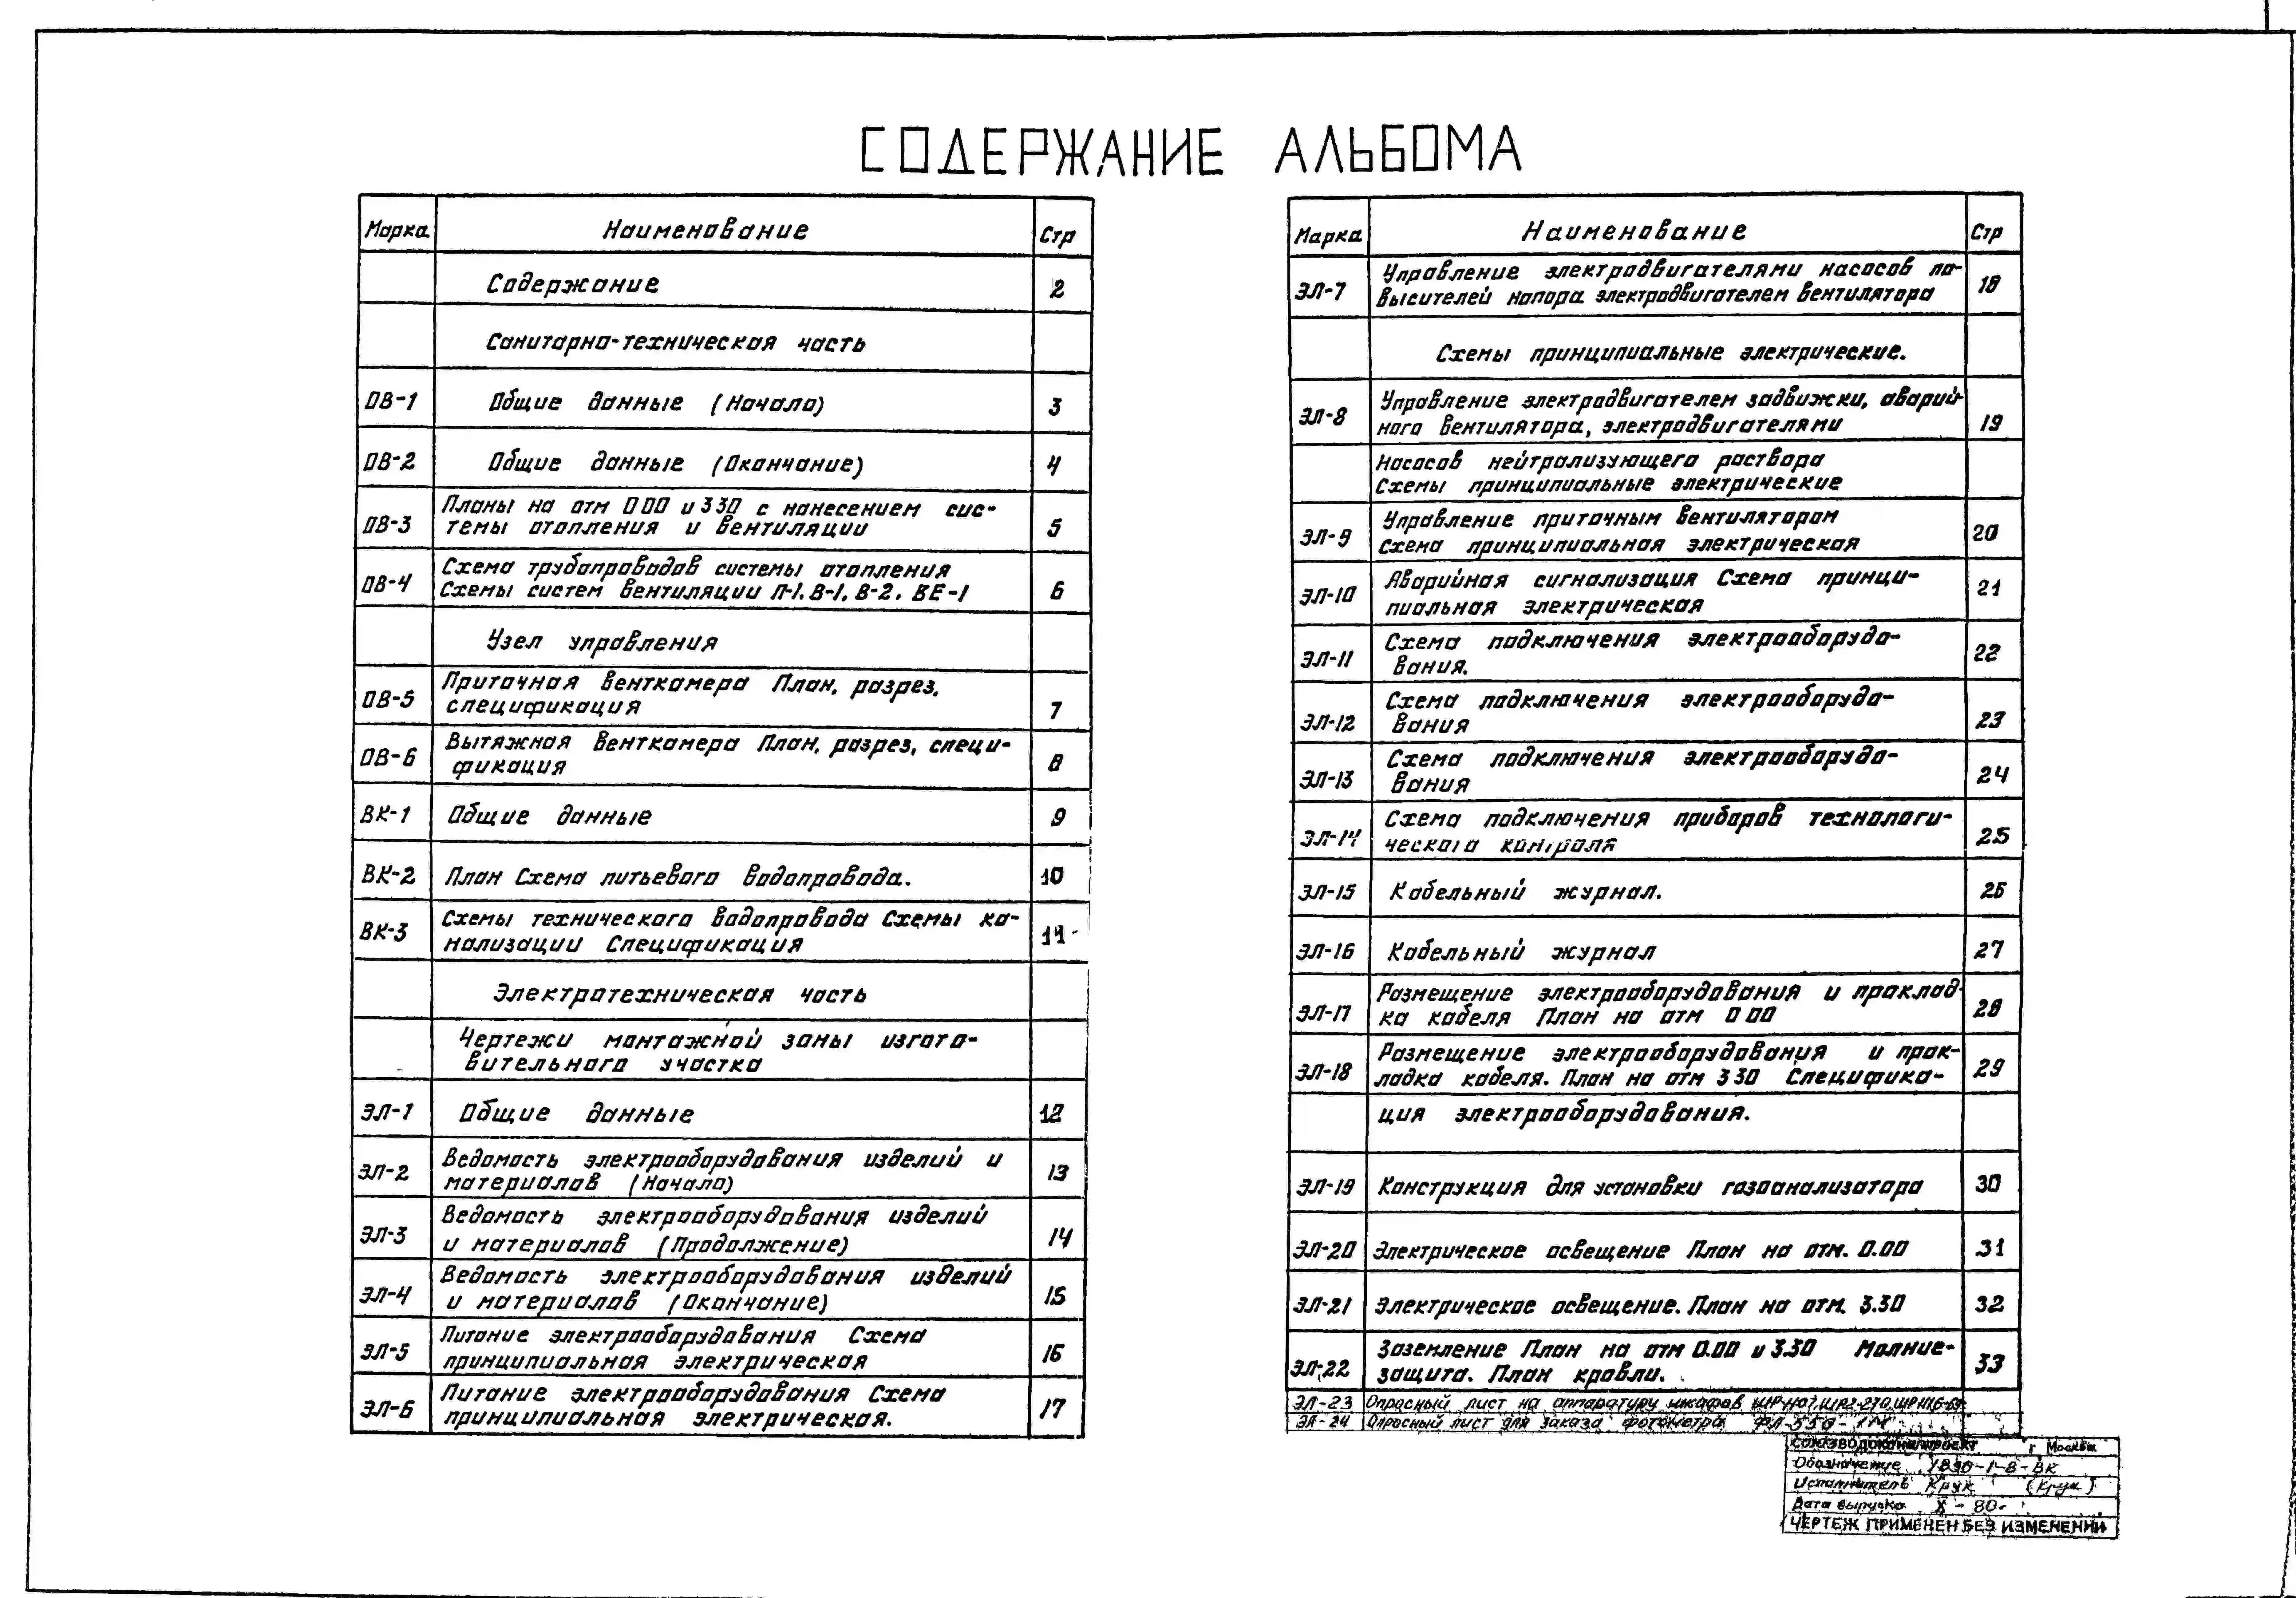 СОДЕРЖАНИЕ АЛЬБОМА
Марка Наименование Стр
Содержание 2
Санитарно-техническая часть
ОВ-1 Общие данные (Начало) 3
ОВ-2 Общие данные (Окончание) 4
Планы на отм 0 00 и 3 30 с нанесением сис-
ОВ-3 темы отопления и вентиляции 5
Схема трубопроводов системы отопления
ОВ-4 Схемы систем вентиляции П-1, В-1, В-2, ВЕ-1 6
Узел управления
Приточная венткамера План, разрез,
ОВ-5 спецификация 7
Вытяжная венткамера План, разрез, специ-
ОВ-6 фикация 8
ВК-1 Общие данные 9
ВК-2 План Схема питьевого водопровода. 10
Схемы технического водопровода Схемы ка-
ВК-3 нализации Спецификация 11
Электротехническая часть
Чертежи монтажной зоны изгото-
вительного участка
ЭЛ-1 Общие данные 12
Ведомость электрооборудования изделий и
ЭЛ-2 материалов (Начало) 13
Ведомость электрооборудования изделий
ЭЛ-3 и материалов (Продолжение) 14
Ведомость электрооборудования изделий
ЭЛ-4 и материалов (Окончание) 15
Питание электрооборудования Схема
ЭЛ-5 принципиальная электрическая 16
Питание электрооборудования Схема
ЭЛ-6 принципиальная электрическая. 17
Марка Наименование Стр
Управление электродвигателями насосов по-
ЭЛ-7 высителей напора электродвигателем вентилятора 18
Схемы принципиальные электрические.
Управление электродвигателем задвижки, аварий-
ЭЛ-8 ного вентилятора, электродвигателями 19
Насосов нейтрализующего раствора
Схемы принципиальные электрические
Управление приточным вентилятором
ЭЛ-9 Схема принципиальная электрическая 20
Аварийная сигнализация Схема принци-
ЭЛ-10 пиальная электрическая 21
Схема подключения электрооборудо-
ЭЛ-11 вания. 22
Схема подключения электрооборудо-
ЭЛ-12 вания 23
Схема подключения электрооборудо-
ЭЛ-13 вания 24
Схема подключения приборов технологи-
ЭЛ-14 ческого контроля 25
ЭЛ-15 Кабельный журнал. 26
ЭЛ-16 Кабельный журнал 27
Размещение электрооборудования и проклад-
ЭЛ-17 ка кабеля План на отм 0 00 28
Размещение электрооборудования и прок-
ЭЛ-18 ладка кабеля. План на отм 3 30 Специфика- 29
ция электрооборудования.
ЭЛ-19 Конструкция для установки газоанализатора 30
ЭЛ-20 Электрическое освещение План на отм. 0.00 31
ЭЛ-21 Электрическое освещение. План на отм. 3.30 32
Заземление План на отм 0.00 и 3.30 Молние-
ЭЛ-22 защита. План кровли. 33
ЭЛ-23 Опросный лист на аппаратуру шкафов
ЭЛ-24 Опросный лист для заказа фотометра ФЛ-550-1М
СОЮЗВОДОКАНАЛПРОЕКТ г Москва
Обозначение 1890-1-В-ВК
Исполнитель Крук (Крук)
Дата выпуска X-80
ЧЕРТЕЖ ПРИМЕНЕН БЕЗ ИЗМЕНЕНИЙ